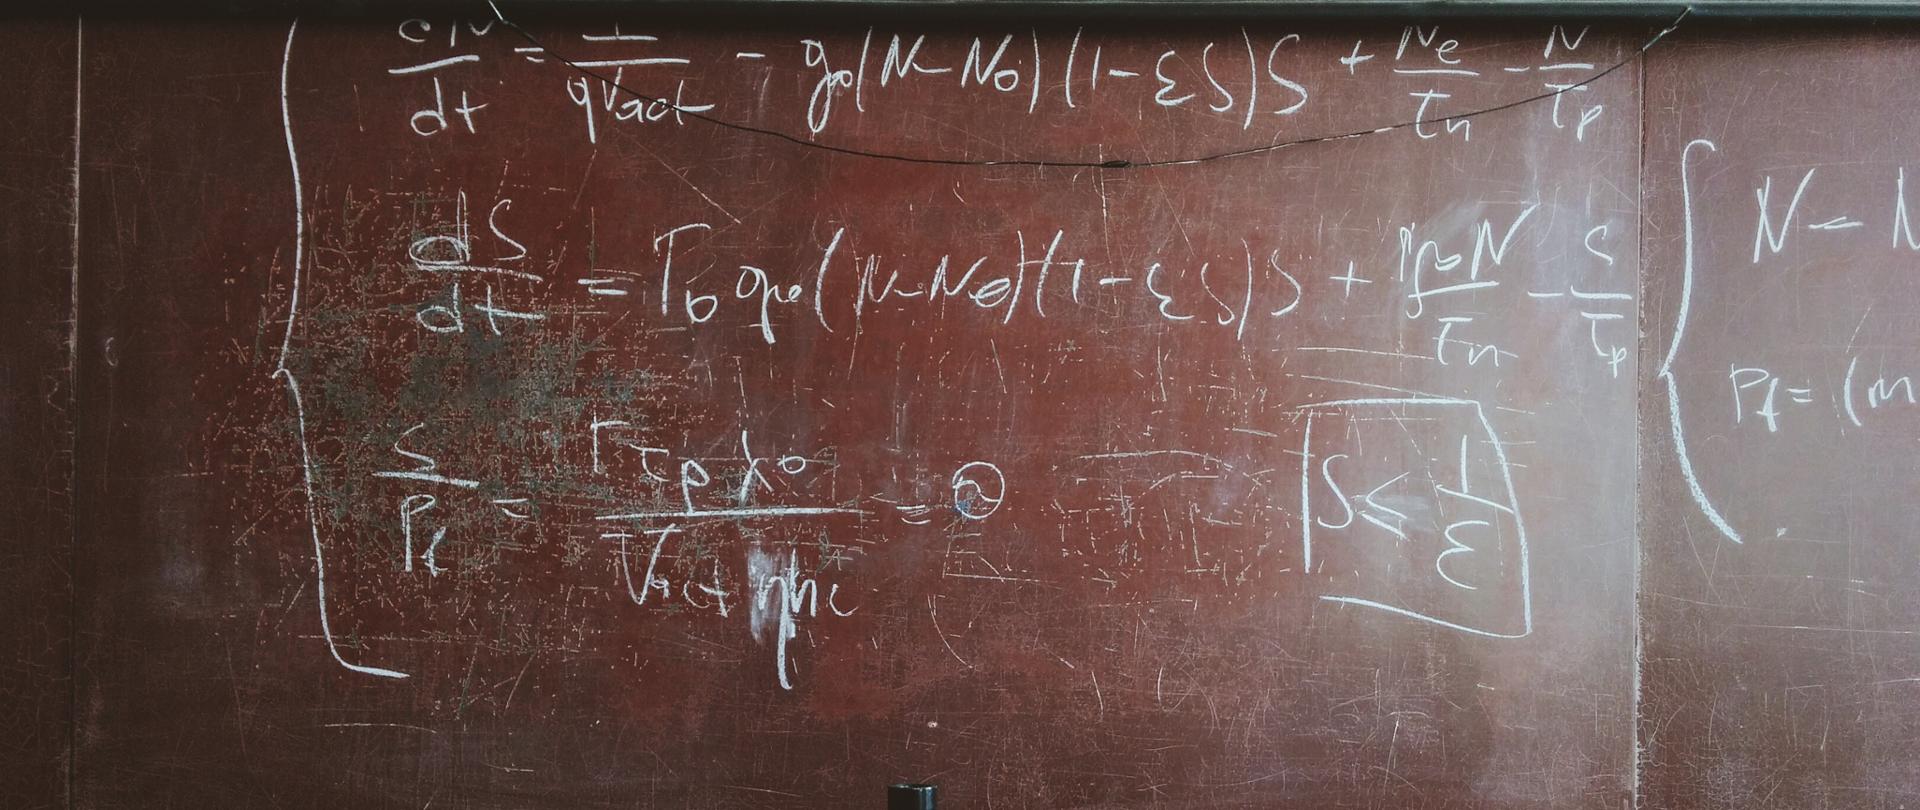 dN/dt = I/qVact - g₀(N-N₀)(1-εS)S + Ne/τn - N/τp
dS/dt = Γ₀g₀(N-N₀)(1-εS)S + N/τn - S/τp
S/Pf = Γτpλ₀/Vactηhc =
S ≤ 1/ε
N = N
Pf = (m